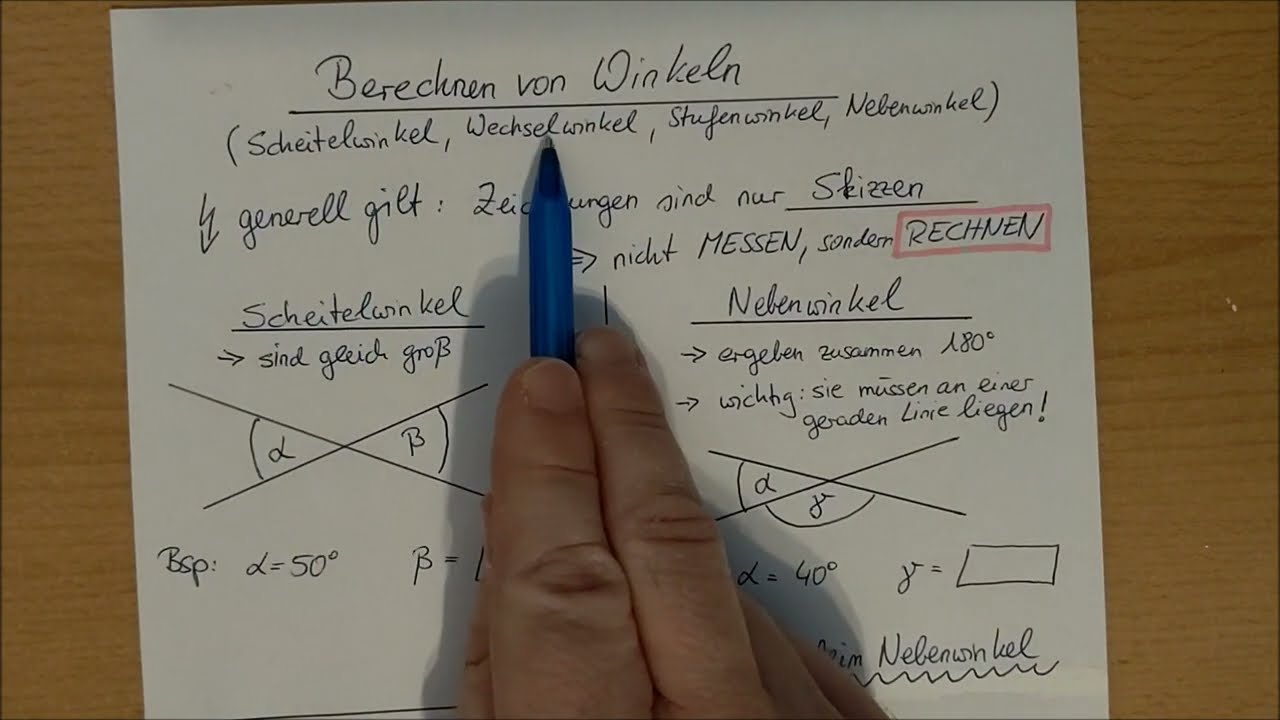 Berechnen von Winkeln
(Scheitelwinkel, Wechselwinkel, Stufenwinkel, Nebenwinkel)
generell gilt: sind nur Skizzen
=> nicht MESSEN, sondern RECHNEN
Scheitelwinkel
-> sind gleich groß
α β
Bsp: α = 50° β =
Nebenwinkel
-> ergeben zusammen 180°
-> wichtig: sie müssen an einer
geraden Linie liegen!
α γ
α = 40° γ =
Nebenwinkel